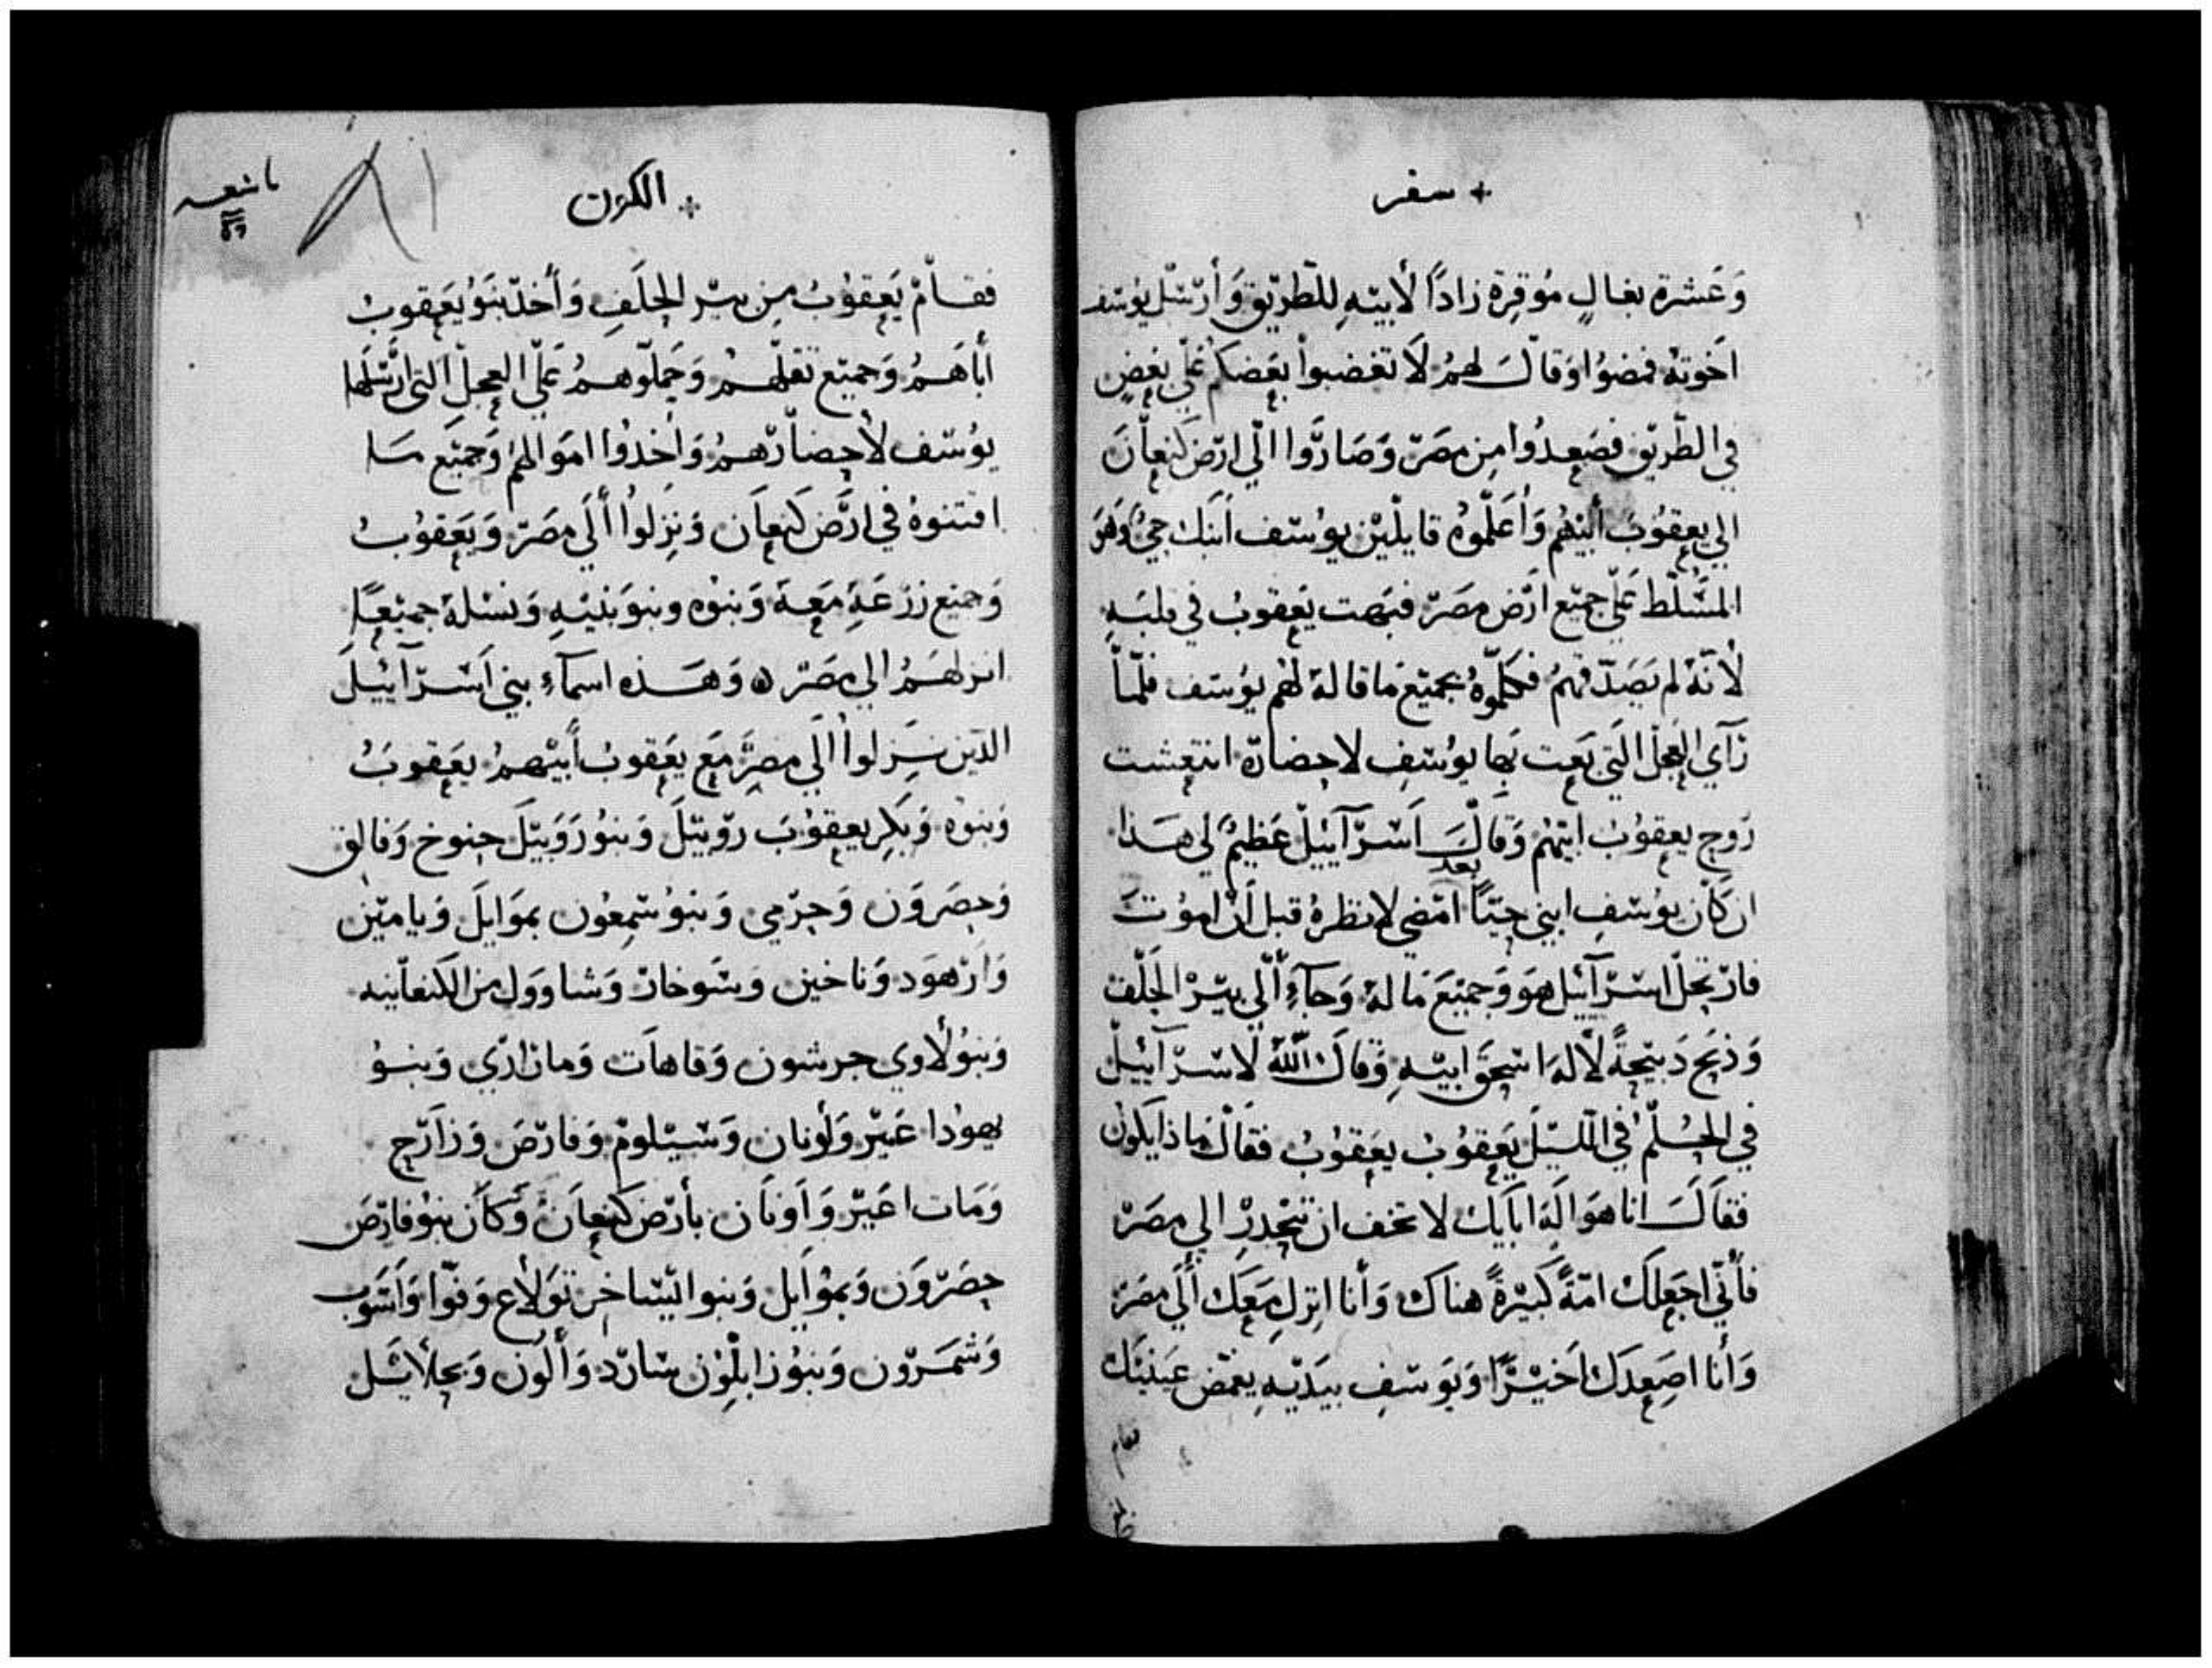 سفر
وَعَشرة بغالٍ مُوقرة زادًا لأبيهِ للطريق وَأرسَل يُوسف
اخوتهُ فمضوُا وَقالَ لهمُ لَا تغضبواْ بعَضكم عَلي بغضٍ
في الطّريق فصَعدُوا مِن مصَر وَصَارَوا الَي ارَض كنعان
الي يعقوُبَ أبيْهُم وَأعَلموُه قايلْين يوُسَف ابنك حيٌ وَهوَ
المسَلط عَلي جميَع ارَض مصَر فبَهت يَعقوبُ في قلبَهِ
لأنهُ لم يَصَدّقهمُ فكلموُهُ بجميَع مَا قالهُ لهُم يوُسَف فلمّا
رَآي العجَل التَي بَعت بَها يوُسَفِ لاحضارَهُ انتعشت
رَوح يعقوُبُ ابيهُم وَقالَ اَسرَآييلْ عَظيمٌ لي هَذا
ان كَان يوُسَفِ ابني بعد حيًا امَضي لانظرهُ قبل أن اموُتَ
فارتحَل اسرَآييل هوَ وَجميَعَ مَا لهُ وَجآءِ ألَي بيَرْ الحَلف
وَذبَحَ دَبيَحةً لألهَ اسَحق ابيَهِ وَقالَ اللّهُ لاسَرآييل
في الحُلم في الليَلَ يَعقوُبُ يعَقوُبُ فقالَ مَاذا يكَون
فقَالَ انا هوَ الَه ابايك لا تخف ان تنَحدِرْ الي مصَرْ
فأني اجعَلكْ امَةً كبيَرةً هناكَ وَأنا انزل مَعَك ألَي مَصَرَ
وَأنا اصَعِدكَ اخيَرًا وَيوَسَفِ بيَديَهِ يغمَض عَينيَك
الكون
فقامْ يَعقوُبُ مِن بيَر الحلَفِ وَأخذ بنوُ يعَقوبُ
أباهَمُ وَجميَع ثقلهْمُ وَحَملوهَمُ عَلي العجَلْ التي ارسَلهَا
يوُسَف لأحضارَهمُ وَاخدُوا امَوالهمُ وَجميَع مَا
اقتنوهُ في ارَض كنعاَن وَنزلواُ ألَي مصَر وَيَعَقوُبُ
وَجميع زرَعَهِ مَعَهُ وَبنوُه وبنوَ بنيَهِ وَنسَلهُ جميَعًا
انزلهَمُ الي مصَر وَهَذه اسمآءِ بني اَسَرآييلَ
الذين نَزلواُ الَي مصرَ مَع يعَقوبُ أبيَهمُ يعَقوبُ
وَبنوُه وَبكر يعقوُبَ روَبيَلَ وَبنوُ رَوَبيَلَ حنوخ وَفالق
وَحصَروَن وَحرَمي وَبنوُ شمعُون بموَايلَ وَيامين
وَارَهوَد وَناخين وَسَوخار وَشاووَل من الكنعانيه
وَبنوُ لأوي جرشون وَقاهاَت وَمارَاري وَبنوُ
يهوُدا عَيَر وَأونان وَسَيَلومْ وَفارَصَ وَزاَرَح
وَمَات اعَيَر وَاوَناَن بأرَض كنعاَن وَكاَن بنوُ فارَصَ
حصَروَن وَبموُايل وَبنوا ايَسَاخر توَلأع وَفوّا وَاَشَوب
وَشمَرَون وَبنوُ زابلوُن سَارَد وَألون وَيحلأيَل